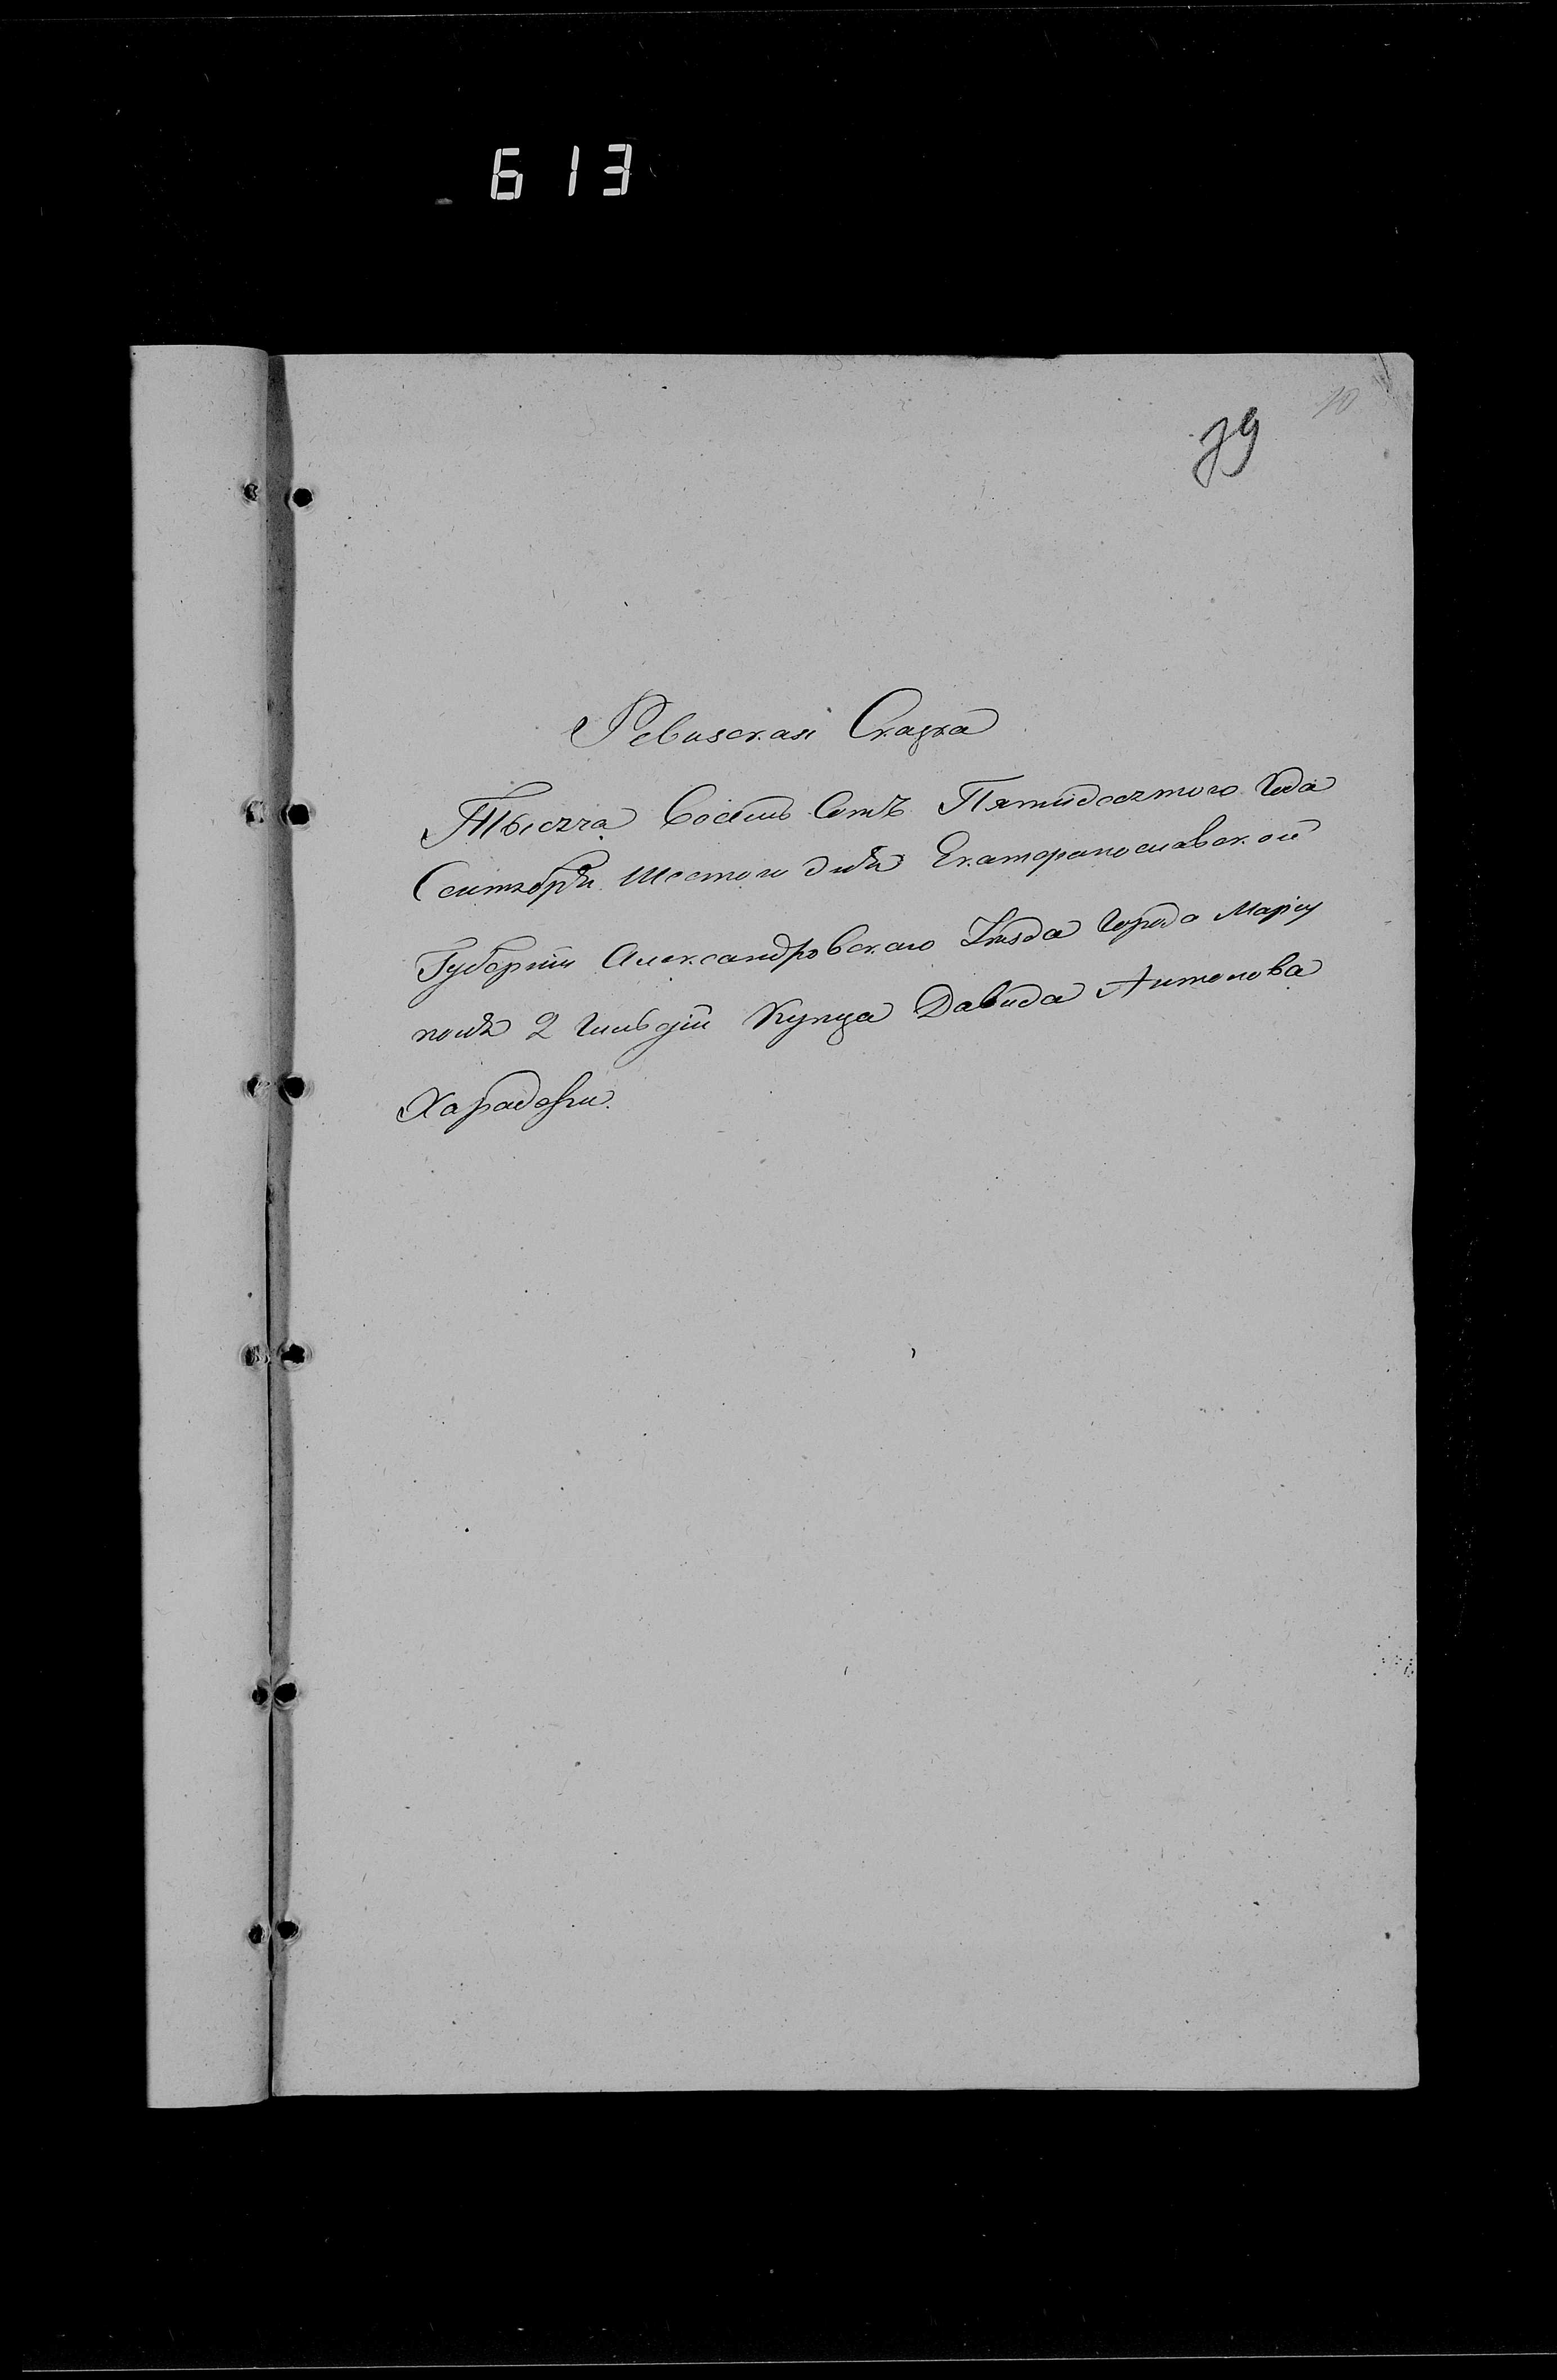 613
10
79
Ревизская Скаска
Тысяча Восемь Сотъ Пятидесятого Года
Сентября Шестого дня Екатеринославской
Губерніи Александровскаго Уезда Города Маріу
поля 2 Гильдіи Купца Давида Антонова
Хараджи.